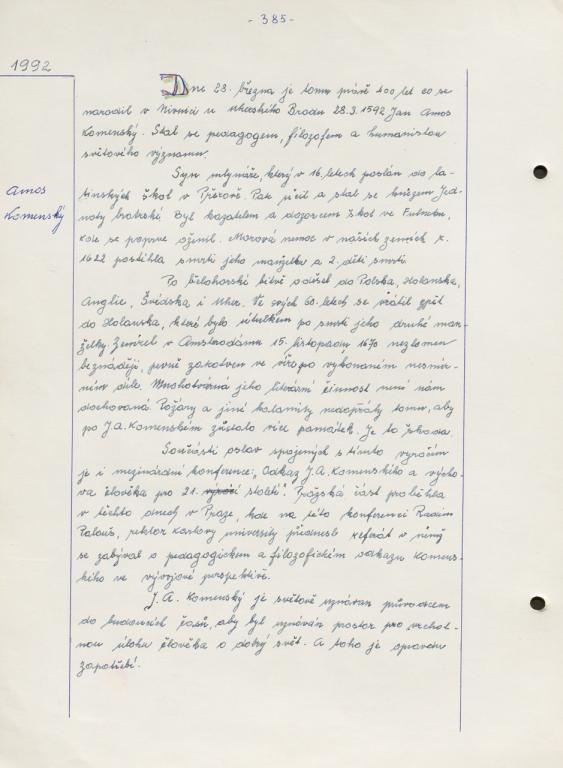 - 385 -
1992
Dne 28. března je tomu právě 400 let co se
narodil v Nivnici u Uherského Brodu 28.3.1592 Jan Amos
Komenský. Stal se pedagogem, filozofem a humanistou
světového významu.
Amos
Komenský
Syn mlynáře, který v 16. letech poslán do la-
tinských škol v Přerově. Pak učil a stal se knězem Jed-
noty bratrské. Byl kazatelem a dozorcem škol ve Fulneku,
kde se poprve oženil. Morová nemoc v našich zemích r.
1622 postihla smrti jeho manželku a 2. děti smrti.
Po bělohorské bitvě odešel do Polska, Holanska,
Anglie, Švédska i Uher. Ve svých 60. letech se vrátil zpět
do Holanska, které bylo útulkem po smrti jeho druhé man-
želky. Zemřel v Amsterodamu 15. listopadu 1670 nezlomen
beznaději, pevně zakotven ve víře po vykonaném nesmír-
ném díle. Mnohotvárná jeho literární činnost není nám
dochovaná. Požáry a jiné kalamity nedopřály tomu, aby
po J.A. Komenském zůstalo více památek. Je to škoda.
Součástí oslav spojených s tímto výročím
je i mezinárodní konference: "Odkaz J.A. Komenského a výcho-
va člověka pro 21. výročí století". Pražská část proběhla
v těchto dnech v Praze, kde na této konferenci Radim
Palouš, rektor Karlovy university přednesl referát v němž
se zabýval o pedagogickém a filozofickém odkazu Komens-
kého ve vývojové perspektivě.
J. A. Komenský je světově uznáván průvodcem
do budoucích časů, aby byl uznáván prostor pro vrchol-
nou úlohu člověka o dobrý svět. A toho je opravdu
zapotřebí.